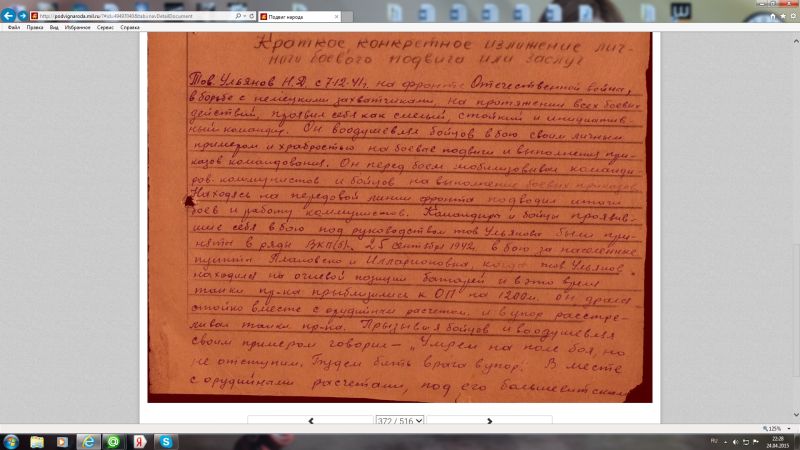 http://podvignaroda.mil.ru/?#id=49497048&tab=navDetailDocument
Подвиг народа
Файл Правка Вид Избранное Сервис Справка
Краткое, конкретное изложение лич-
ного боевого подвига или заслуг
Тов. Ульянов Н.Д. с 7-12-41г. на фронте Отечественной войны,
в борьбе с немецкими захватчиками. На протяжении всех боевых
действий, проявил себя как смелый, стойкий и инициатив-
ный командир. Он воодушевлял бойцов в бою своим личным
примером и храбростью на боевые подвиги и выполнения при-
казов командования. Он перед боем мобилизовывал команди-
ров, коммунистов и бойцов на выполнение боевых приказов.
Находясь на передовой линии фронта подводил итоги
боев и работу коммунистов. Командиры и бойцы проявив-
шие себя в бою под руководством тов Ульянова были при-
няты в ряды ВКП(б). 25 сентября 1942 в бою за населенные
пункты и Илларионовка, когда тов Ульянов
находился на огневой позиции батарей и в это время
танки пр-ка приблизились к ОП на 1200м. он дрался
стойко вместе с орудийным расчетом. и в упор расстре-
ливал танки пр-ка. Призывая бойцов и воодушевляя
своим примером говорил – „Умрем на поле боя, но
не отступим. Будем бить врага в упор." В месте
с орудийными расчетами, под его большевитским
372 / 516
125%
RU
22:28
24.04.2015